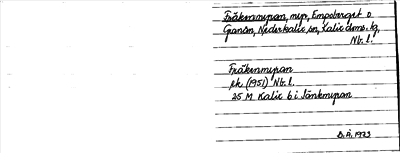 Fräkenmyran, myr, Empeberget o
Granån, Nederkalix sn, Kalix dms. lg,
Nb. l.
Fräkenmyran
ek (1951) Nb. l.
25 M Kalix b i Jänkmyran
B.Ä. 1973